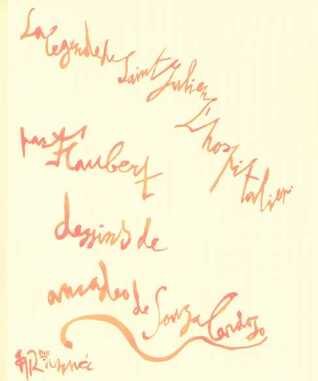 La Legende de Saint Julien L'hospitalier
par Flaubert
dessins de
amadeo de Souza Cardozo